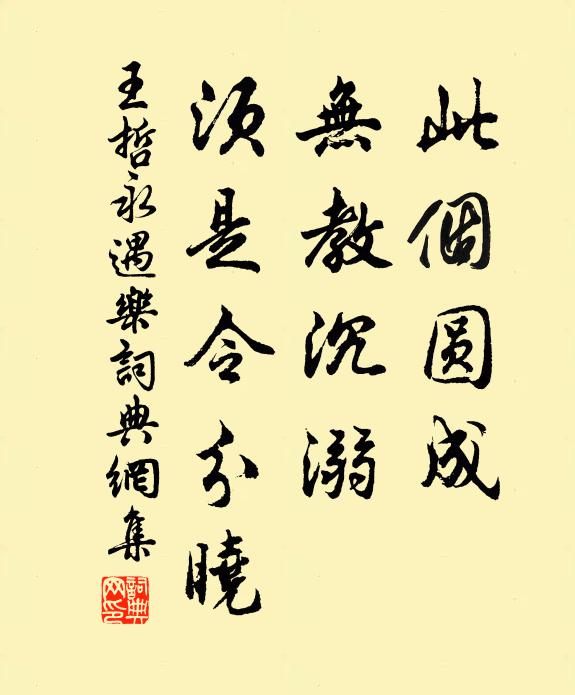 此個圆成
無教沉溺
須是令分曉
王哲永遇樂詞典網集
詞典网印